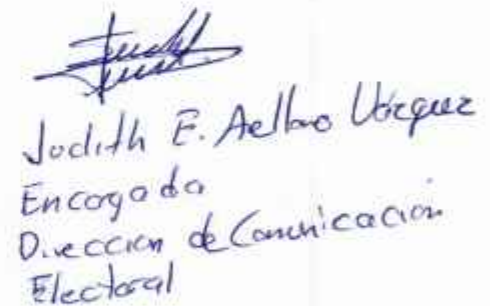 Judith E. Arellano Vázquez
Encargada
Dirección de Comunicación
Electoral